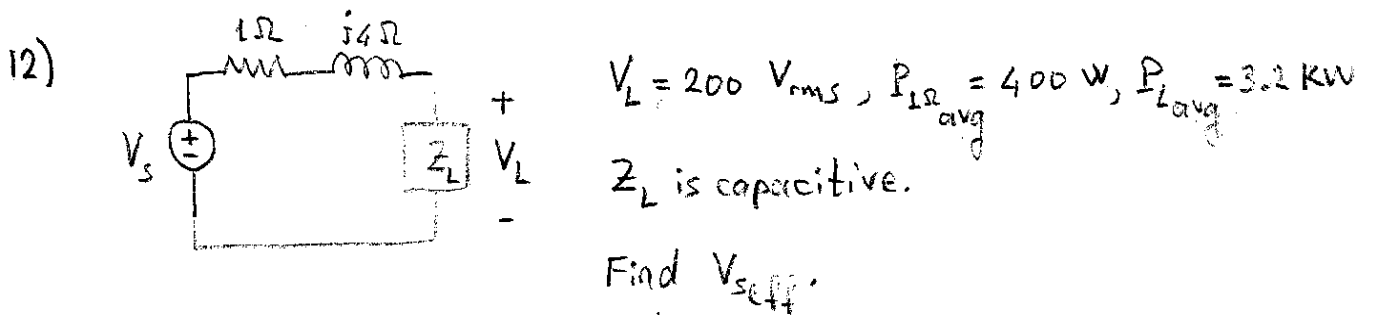 12)
1Ω j4Ω
V_L = 200 V_rms , P_1Ω avg = 400 W, P_L avg = 3.2 KW
+
V_s + - Z_L V_L
Z_L is capacitive.
-
Find V_s eff.